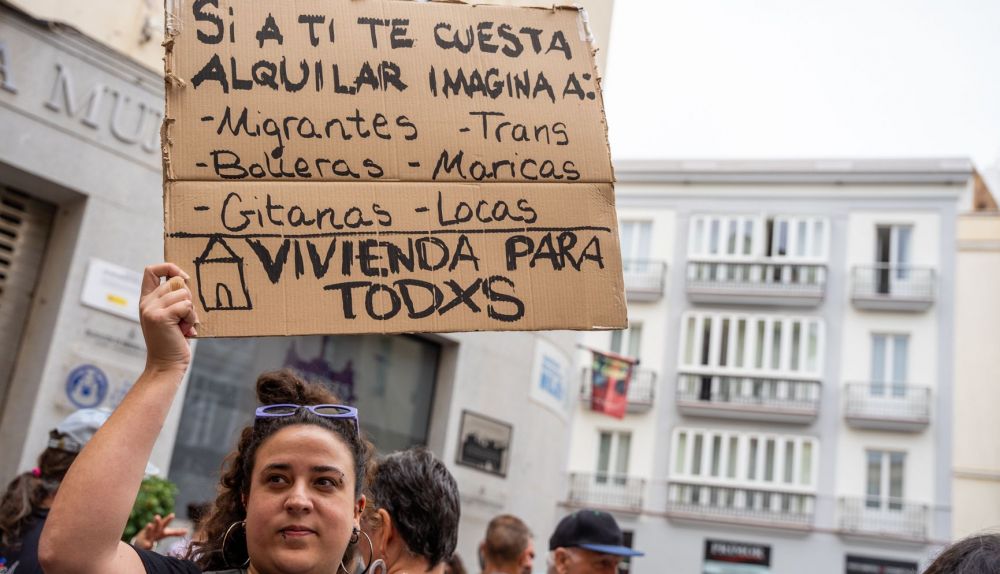 Si A TI TE CUESTA
ALQUILAR IMAGINA A:
- Migrantes - Trans
- Bolleras - Maricas
- Gitanas - Locas
VIVIENDA PARA
TODXS
A MU
PROMOD